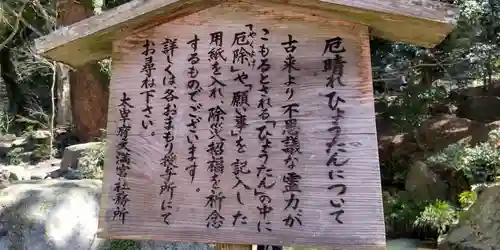 厄晴れひょうたんについて
古来より不思議な霊力が
こもるとされる「ひょうたん」の中に
「厄除」や「願い事」を記入した
やくよけ
用紙を入れ 除災招福を祈念
するものでございます。
詳しくは各おまもり授与所にて
お尋ね下さい。
太宰府天満宮社務所